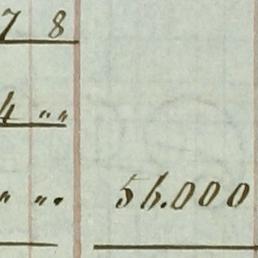 7 8
4 " "
" " " 56.000